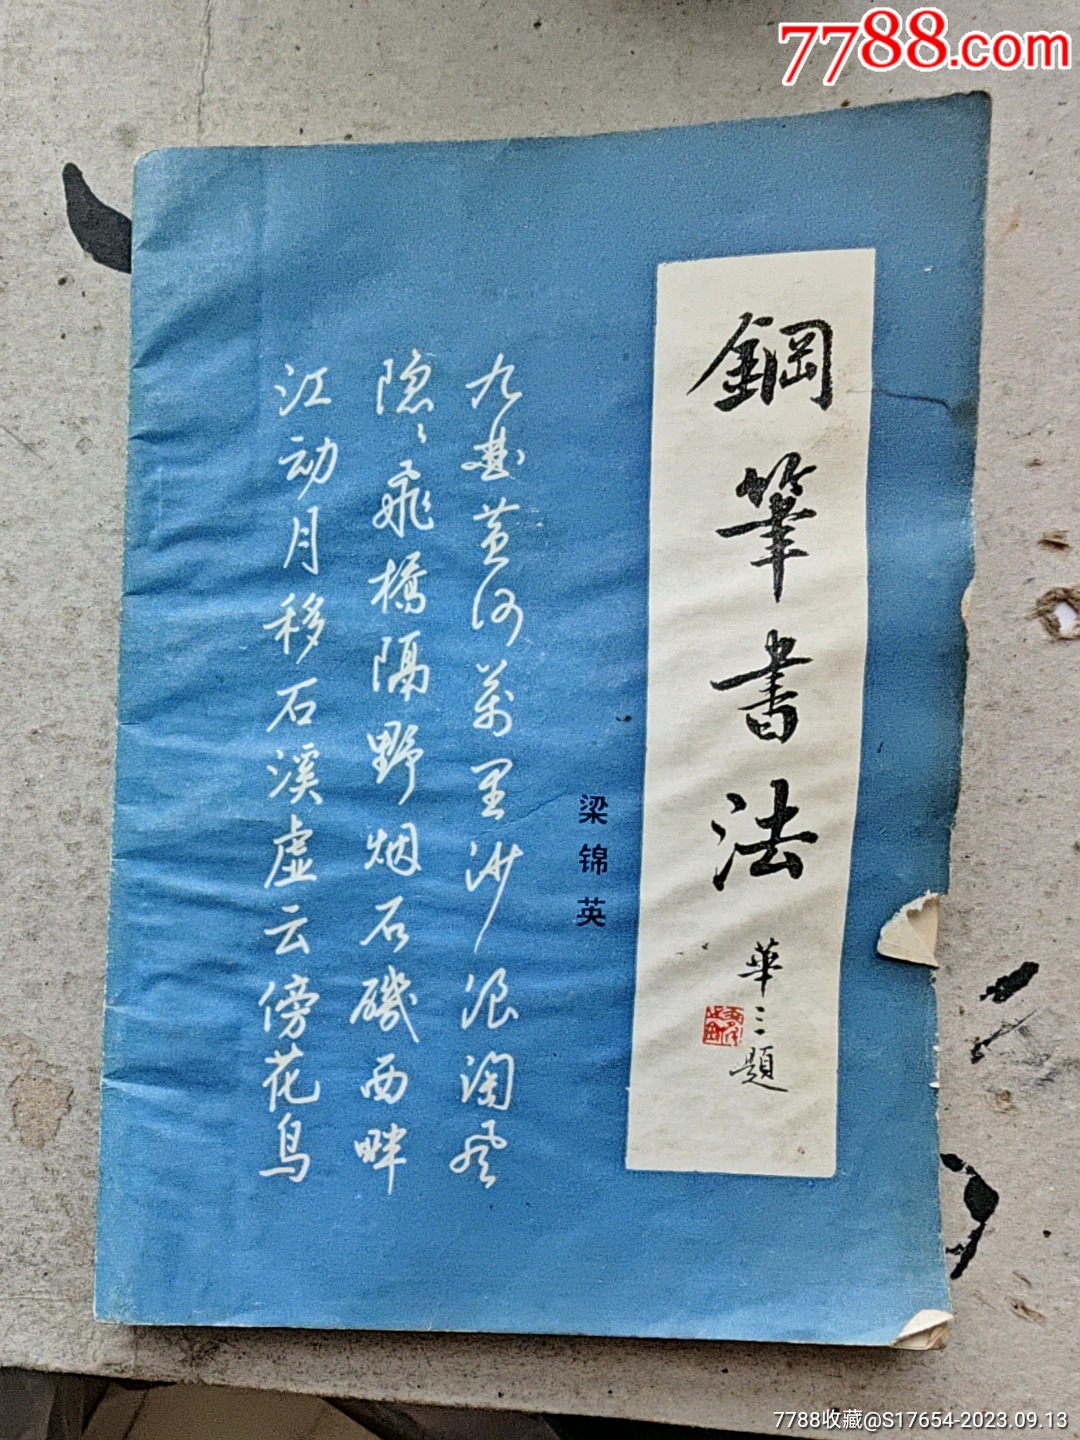 7788.com
鋼筆書法
華三題
梁锦英
九曲黄河萬里沙浪淘风
隐隐飛橋隔野烟石磯西畔
江动月移石溪虚云傍花鸟
7788收藏@S17654-2023.09.13